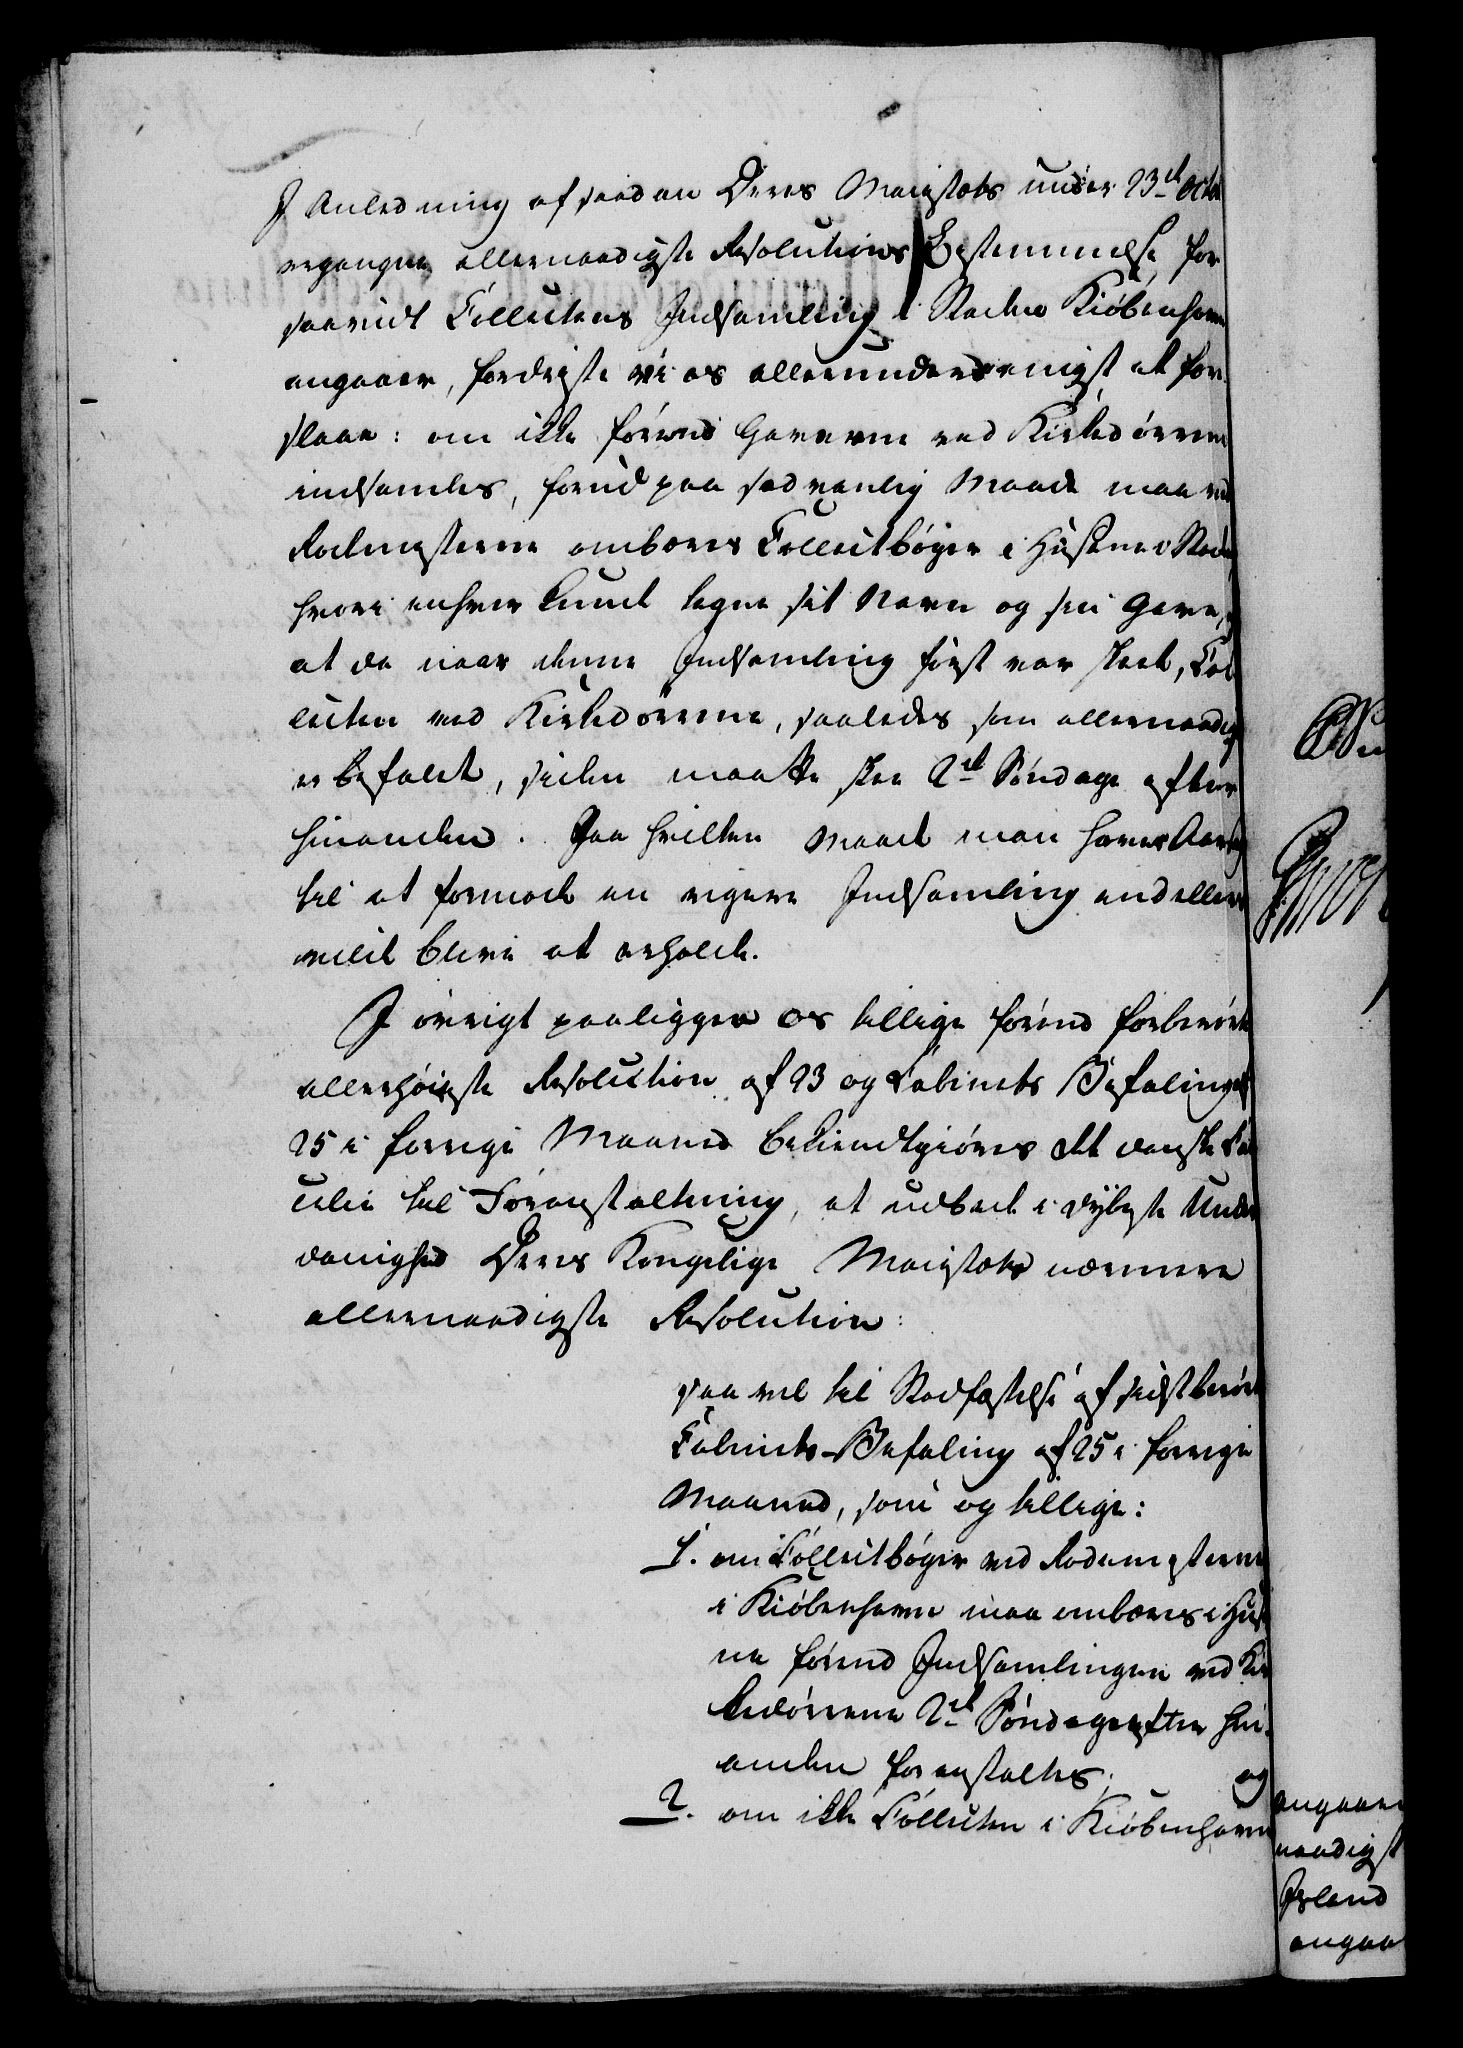 I Anledning af saadan Deres Majestæts under 23de Octbr
ergangne allernaadigste Resolutions Bestemmelse, for
saavidt Collectens Indsamling i Staden Kiøbenhavn
angaaer, fordriste vi os allerunderdanigst at fore-
slaae: om ikke førend Gaverne ved Kirkedørrene
indsamles, forud paa sædvanlig Maade maa ved
Rodemesterne ombæres Collectbøger i Husene i Staden
hvori enhver kunde tegne sit Navn og sin Gave,
at da naar denne Indsamling først var skeet, Col-
lecten ved Kirkedørrene, saaledes som allernaadigst
er befalet, siden maatte skee 2de Søndage efter
hinanden. Paa hvilken Maade man haver Aarsag
til at formode en rigere Indsamling end ellers
vilde blive at erholde.
I øvrigt paaligger os tillige førend forberørte
allerhøieste Resolution af 23 og Cabinets Befalingen af
25 i forrige Maaned bekiendtgiøres det danske Can-
celie til Foranstaltning, at udbede i dybeste Under-
danighed Deres Kongelige Majestæts nærmere
allernaadigste Resolution:
saa vel til Stadfæstelse af sidstberørte
Cabinets-Befaling af 25 i forrige
Maaned, som og tillige:
1. om Collectbøger ved Rodemesterne
i Kiøbenhavn maa ombæres i Huse-
ne førend Indsamlingen ved Kir-
kedørrene 2de Søndage efter hin-
anden foranstaltes; og
2. om ikke Collecten i Kiøbenhavn
angaaen
naadigst
Island
angaa